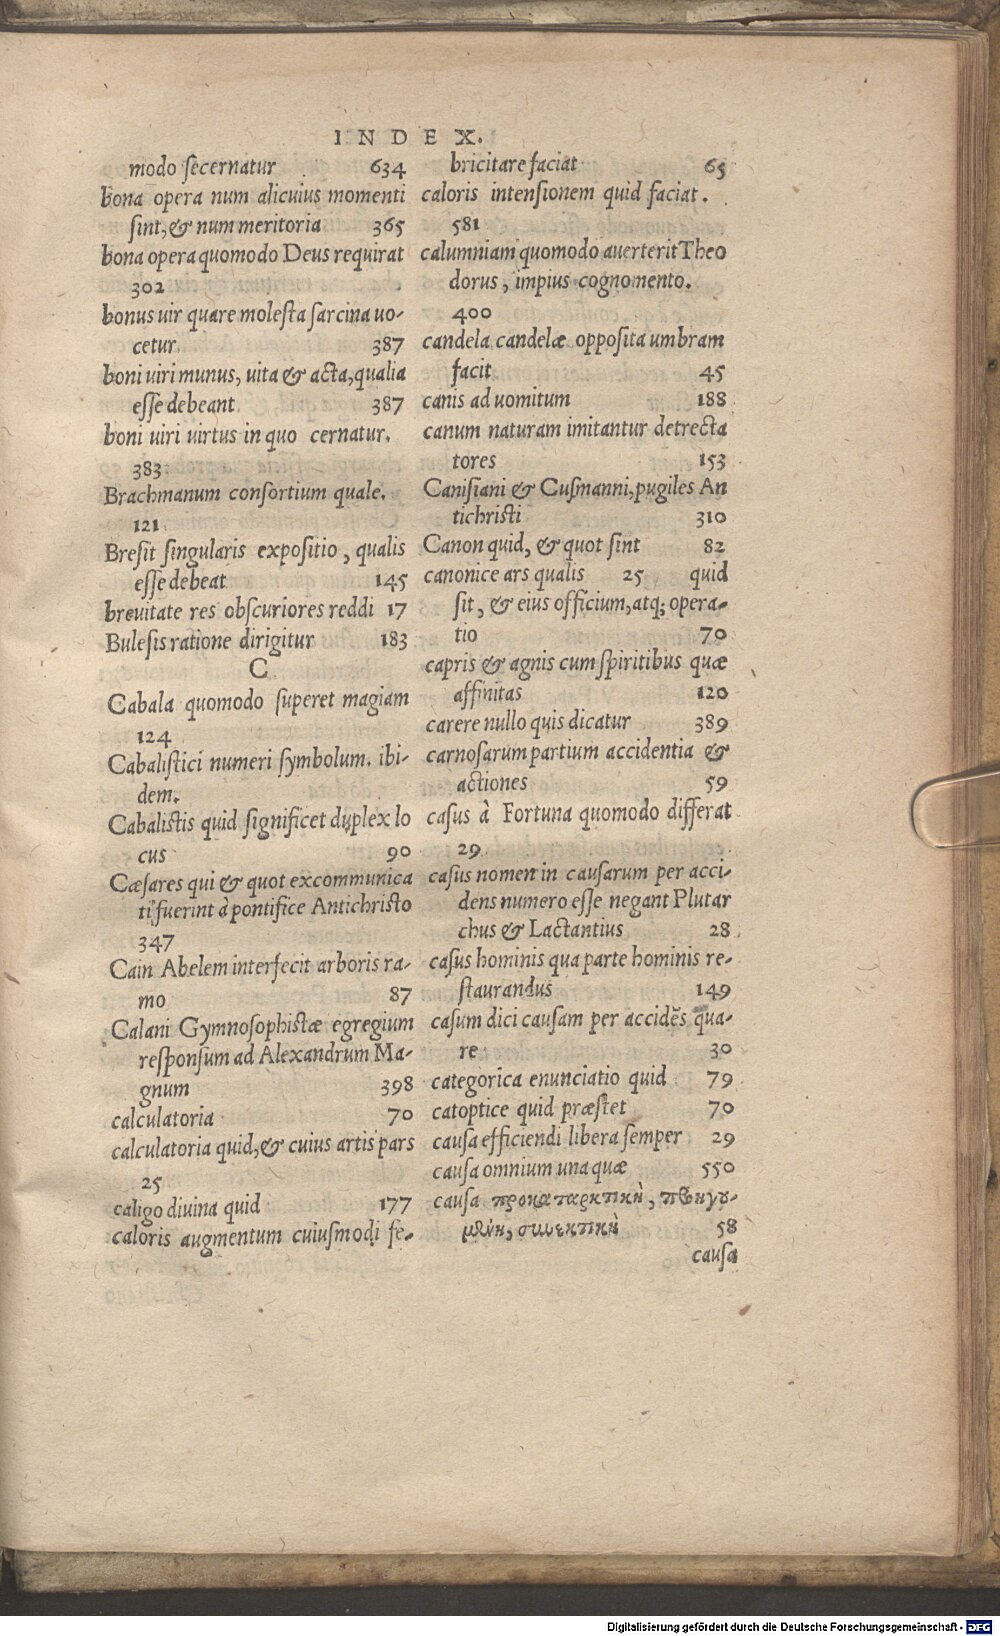 INDEX.
modo secernatur 634
bona opera num alicuius momenti
sint, & num meritoria 365
bona opera quomodo Deus requirat
302
bonus uir quare molesta sarcina uo-
cetur 387
boni uiri munus, uita & acta, qualia
esse debeant 387
boni uiri uirtus in quo cernatur.
383
Brachmanum consortium quale.
121
Bresit singularis expositio, qualis
esse debeat 145
breuitate res obscuriores reddi 17
Bulesis ratione dirigitur 183
C
Cabala quomodo superet magiam
124
Cabalistici numeri symbolum. ibi-
dem.
Cabalistis quid significet duplex lo
cus 90
Cæsares qui & quot excommunica
ti fuerint à pontifice Antichristo
347
Cain Abelem interfecit arboris ra-
mo 87
Calani Gymnosophistæ egregium
responsum ad Alexandrum Ma-
gnum 398
calculatoria 70
calculatoria quid, & cuius artis pars
25
caligo diuina quid 177
caloris augmentum cuiusmodi fe-
bricitare faciat 65
caloris intensionem quid faciat.
581
calumniam quomodo auerterit Theo
dorus, impius cognomento.
400
candela candelæ opposita umbram
facit 45
canis ad uomitum 188
canum naturam imitantur detrecta
tores 153
Canisiani & Cusmanni, pugiles An
tichristi 310
Canon quid, & quot sint 82
canonice ars qualis 25 quid
sit, & eius officium, atq; opera-
tio 70
capris & agnis cum spiritibus quæ
affinitas 120
carere nullo quis dicatur 389
carnosarum partium accidentia &
actiones 59
casus à Fortuna quomodo differat
29
casus nomen in causarum per acci-
dens numero esse negant Plutar
chus & Lactantius 28
casus hominis qua parte hominis re-
staurandus 149
casum dici causam per accidēs qua-
re 30
categorica enunciatio quid 79
catoptice quid præstet 70
causa efficiendi libera semper 29
causa omnium una quæ 550
causa προκαταρκτικὴ, προηγου-
μένη, συνεκτικὴ 58
causa
Digitalisierung gefördert durch die Deutsche Forschungsgemeinschaft - DFG